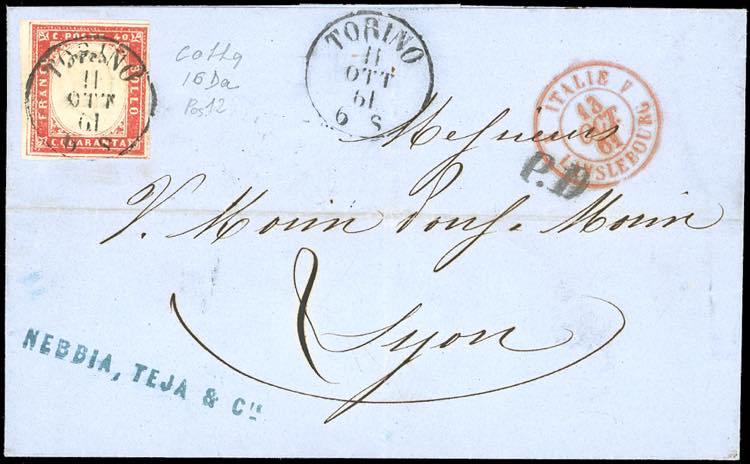 C. POSTE 40.
FRANCO
BOLLO
C. QUARANTA
TORINO
11
OTT
61
6 S
16Da
Pos. 12
TORINO
11
OTT
61
6 S
ITALIE
13
OCT.
61
LANSLEBOURG
P.D
Messieurs
V. Morin Morin
Lyon
NEBBIA, TEJA & C